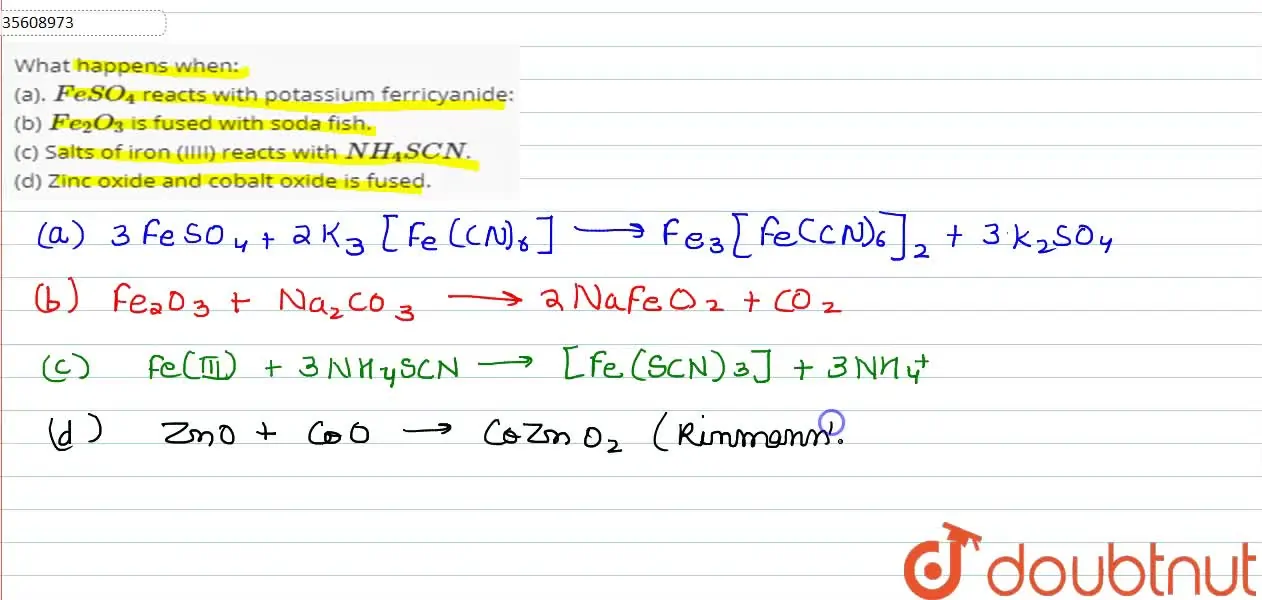 35608973
What happens when:
(a). FeSO₄ reacts with potassium ferricyanide:
(b) Fe₂O₃ is fused with soda fish.
(c) Salts of iron (IIII) reacts with NH₄SCN.
(d) Zinc oxide and cobalt oxide is fused.
(a) 3 FeSO₄ + 2K₃ [Fe(CN)₆] ⟶ Fe₃[Fe(CN)₆]₂ + 3K₂SO₄
(b) Fe₂O₃ + Na₂CO₃ ⟶ 2NaFeO₂ + CO₂
(c) Fe(III) + 3NH₄SCN ⟶ [Fe(SCN)3] + 3NH₄⁺
(d) ZnO + CoO ⟶ CoZnO₂ (Rinmann'.
doubtnut